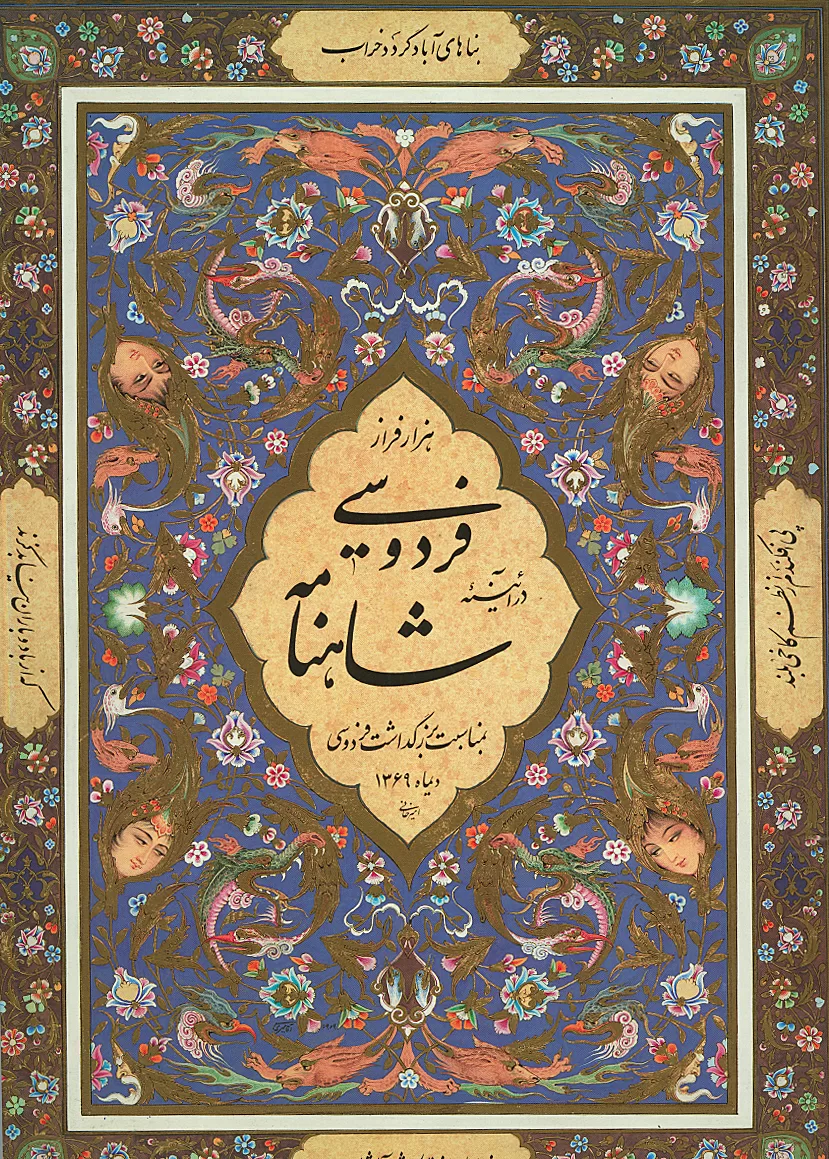 بناهای آباد گردد خراب
هزار فراز
فردوسی
در آئینهٔ
شاهنامه
بمناسبت بزرگداشت فردوسی
دیماه ۱۳۶۹
امیرخانی
پی افکندم از نظم کاخی بلند
که از باد و باران نیابد گزند